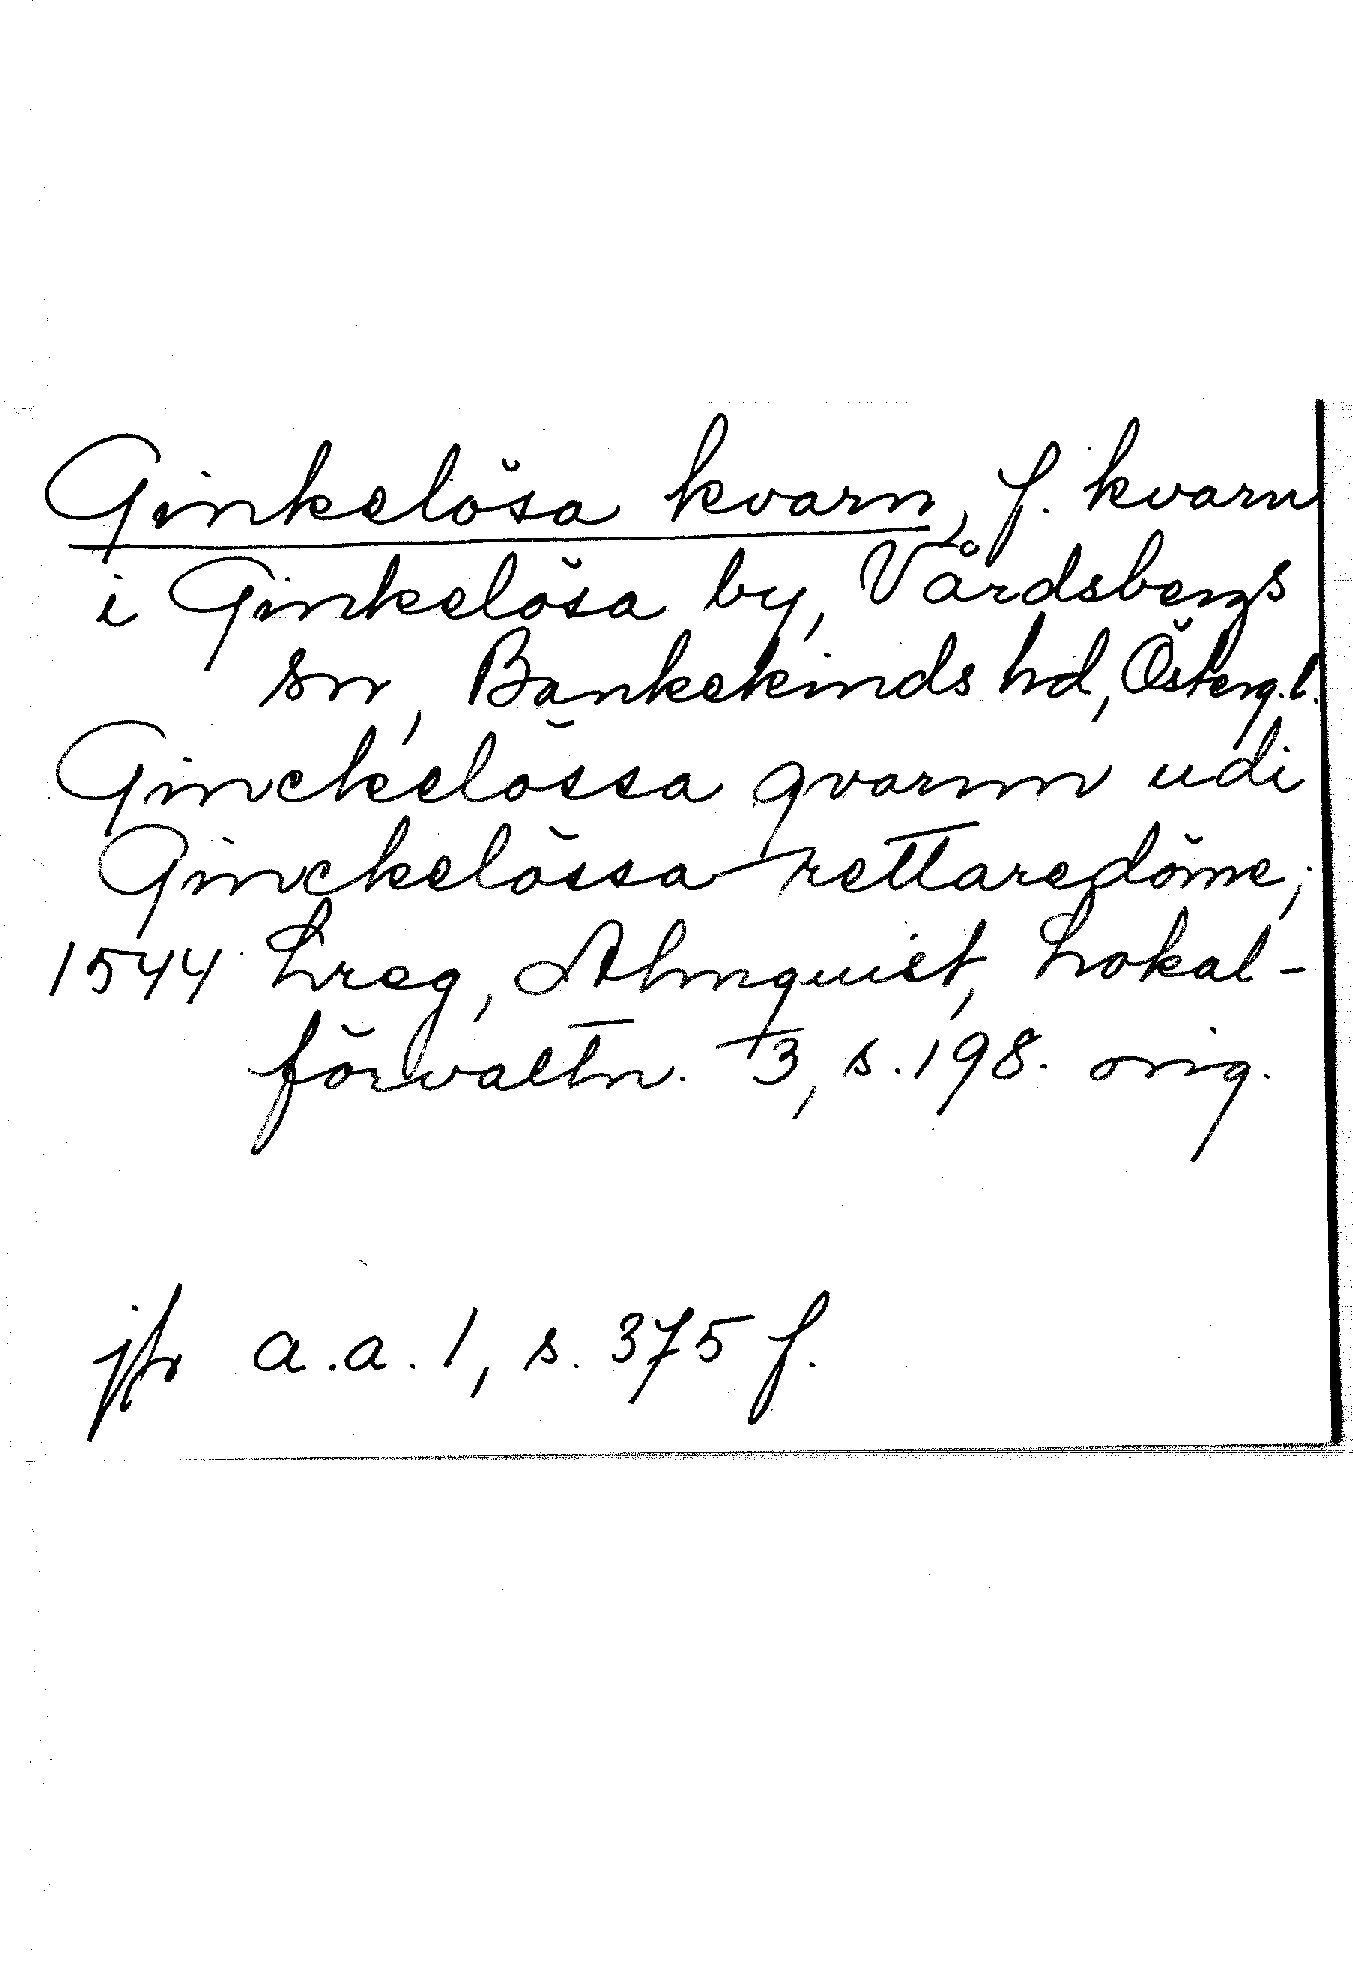 Ginkelösa kvarn, f. kvarn
i Ginkelösa by, Vårdsbergs
sn, Bankekinds hd, Österg.l.
Ginckelössa qvarnn udi
Ginckelössa rettaredöme;
1544 Lreg, Almquist, Lokal-
förvaltn. 3, s. 198. orig.
jfr a.a. 1, s. 375 f.